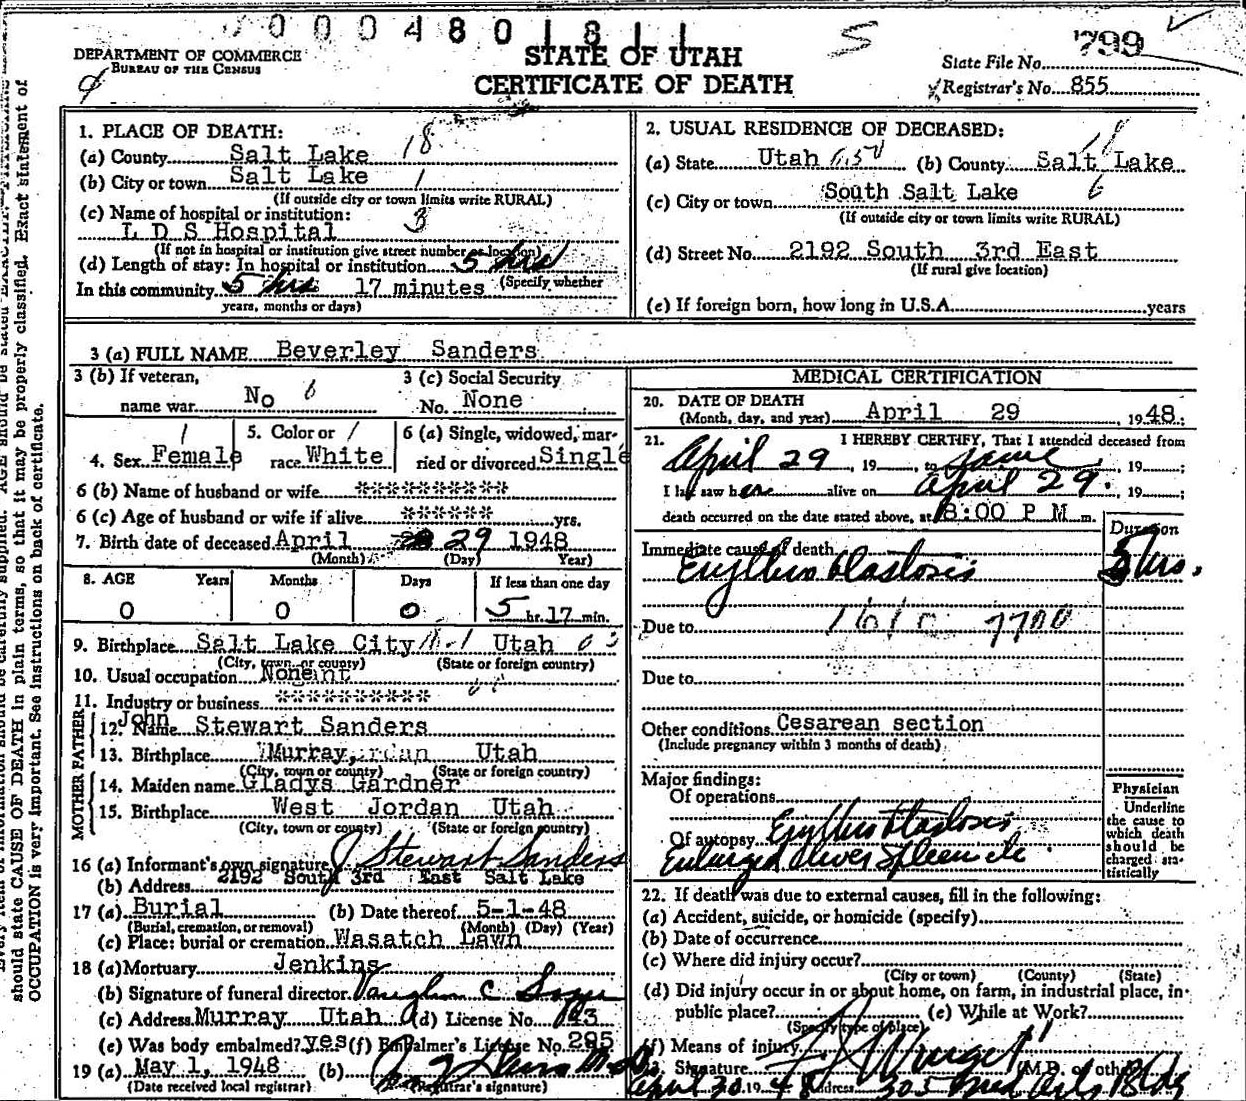 000480181
DEPARTMENT OF COMMERCE
BUREAU OF THE CENSUS
STATE OF UTAH
CERTIFICATE OF DEATH
State File No. 799
Registrar's No. 855
should state CAUSE OF DEATH in plain terms, so that it may be properly classified. Exact statement of
OCCUPATION is very important. See instructions on back of certificate.
1. PLACE OF DEATH:
(a) County Salt Lake 18
(b) City or town Salt Lake 1
(If outside city or town limits write RURAL)
(c) Name of hospital or institution: 3
L D S Hospital
(If not in hospital or institution give street number or location)
(d) Length of stay: In hospital or institution 5 hrs
(Specify whether
In this community 5 hrs 17 minutes
years, months or days)
2. USUAL RESIDENCE OF DECEASED:
(a) State Utah (b) County Salt Lake
(c) City or town South Salt Lake 6
(If outside city or town limits write RURAL)
(d) Street No. 2192 South 3rd East
(If rural give location)
(e) If foreign born, how long in U.S.A. years
3 (a) FULL NAME Beverley Sanders
3 (b) If veteran,
name war No 6
3 (c) Social Security
No. None
4. Sex Female
5. Color or
race White
6 (a) Single, widowed, mar-
ried or divorced Single
6 (b) Name of husband or wife **********
6 (c) Age of husband or wife if alive ****** yrs.
7. Birth date of deceased April 29 1948
(Month) (Day) Year)
8. AGE Years Months Days If less than one day
0 0 0 5 hr. 17 min.
9. Birthplace Salt Lake City Utah
(City, town or county) (State or foreign country)
10. Usual occupation None
11. Industry or business **********
FATHER
12. Name John Stewart Sanders
13. Birthplace Murray, Utah
(City, town or county) (State or foreign country)
MOTHER
14. Maiden name Gladys Gardner
15. Birthplace West Jordan Utah
(City, town or county) (State or foreign country)
16 (a) Informant's own signature J. Stewart Sanders
(b) Address 2192 South 3rd East Salt Lake
17 (a) Burial (b) Date thereof 5-1-48
(Burial, cremation, or removal) (Month) (Day) (Year)
(c) Place: burial or cremation Wasatch Lawn
18 (a) Mortuary Jenkins
(b) Signature of funeral director Vaughn C
(c) Address Murray Utah (d) License No.
(e) Was body embalmed? yes (f) Embalmer's License No. 295
19 (a) May 1, 1948 (b)
(Date received local registrar) (Registrar's signature)
MEDICAL CERTIFICATION
20. DATE OF DEATH
(Month, day, and year) April 29 1948.
21. I HEREBY CERTIFY, That I attended deceased from
April 29, 19 , to same, 19 ;
I last saw her alive on April 29, 19 ;
death occurred on the date stated above, at 8:00 P M m.
Duration
Immediate cause of death
Erythroblastosis 5 hrs.
Due to 7700
Due to
Other conditions Cesarean section
(Include pregnancy within 3 months of death)
Major findings:
Of operations
Of autopsy Erythroblastosis
Enlarged liver Spleen etc
Physician
Underline
the cause to
which death
should be
charged sta-
tistically
22. If death was due to external causes, fill in the following:
(a) Accident, suicide, or homicide (specify)
(b) Date of occurrence
(c) Where did injury occur?
(City or town) (County) (State)
(d) Did injury occur in or about home, on farm, in industrial place, in
public place? (e) While at Work?
(Specify type of place)
(f) Means of injury
23. Signature (M.D. or other)
April 30 1948 Address 305 Med Arts Bldg